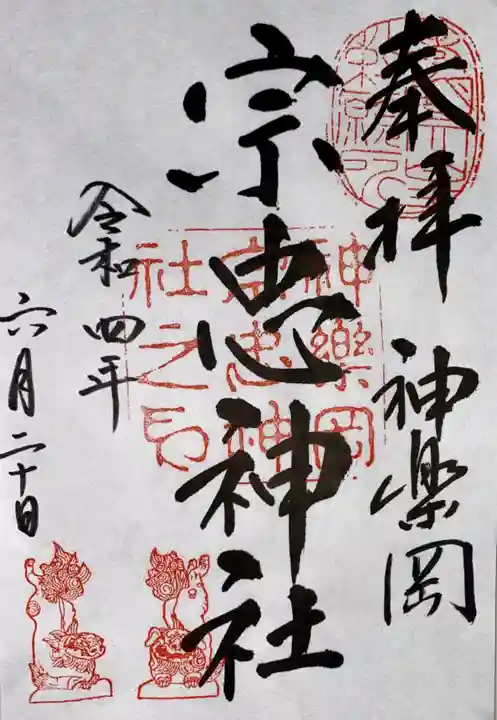 奉拝
神楽岡
宗忠神社
令和四年
六月二十日
神樂岡
宗忠神
社之印